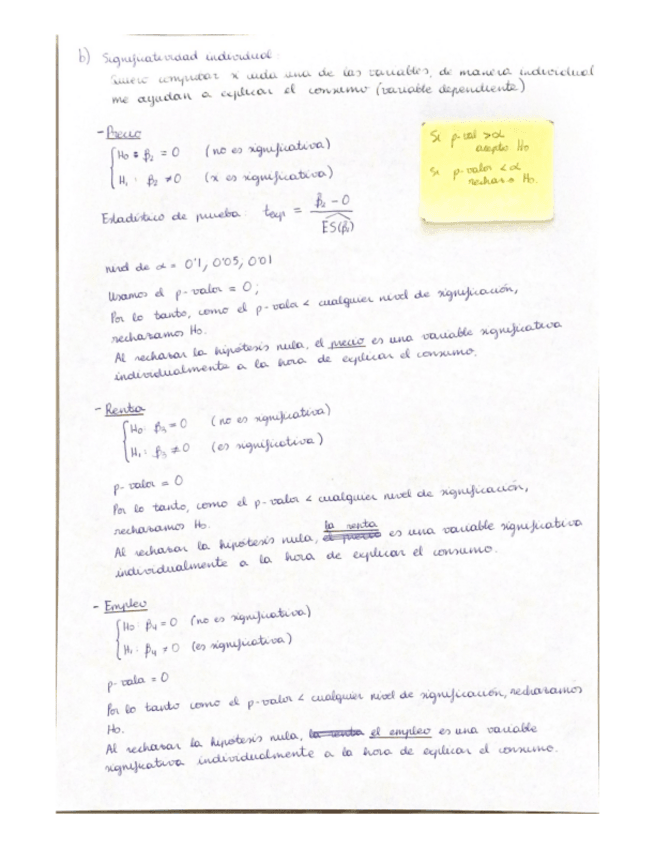 b) Significatividad individual:
Quiero comprobar x cada una de las variables, de manera individual
me ayudan a explicar el consumo (variable dependiente)
- Precio
H0: β2 = 0 (no es significativa)
H1: β2 ≠ 0 (x es significativa)
Si p-val > α
acepto H0
Si p-valor < α
rechazo H0.
Estadístico de prueba: texp = β2 - 0 / ES(β2)
nivel de α = 0'1, 0'05, 0'01
Usamos el p-valor = 0;
Por lo tanto, como el p-valor < cualquier nivel de significación,
rechazamos H0.
Al rechazar la hipótesis nula, el precio es una variable significativa
individualmente a la hora de explicar el consumo.
- Renta
H0: β3 = 0 (no es significativa)
H1: β3 ≠ 0 (es significativa)
p-valor = 0
Por lo tanto, como el p-valor < cualquier nivel de significación,
rechazamos H0.
Al rechazar la hipótesis nula, el precio la renta es una variable significativa
individualmente a la hora de explicar el consumo.
- Empleo
H0: β4 = 0 (no es significativa)
H1: β4 ≠ 0 (es significativa)
p-valor = 0
Por lo tanto como el p-valor < cualquier nivel de significación, rechazamos
H0.
Al rechazar la hipótesis nula, la renta el empleo es una variable
significativa individualmente a la hora de explicar el consumo.